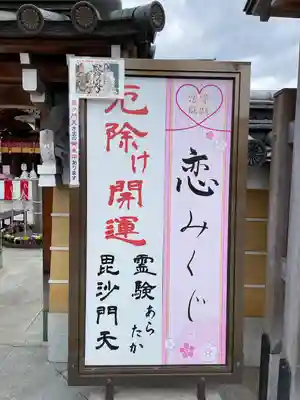 恋みくじ
厄除け開運
霊験あらたか
毘沙門天